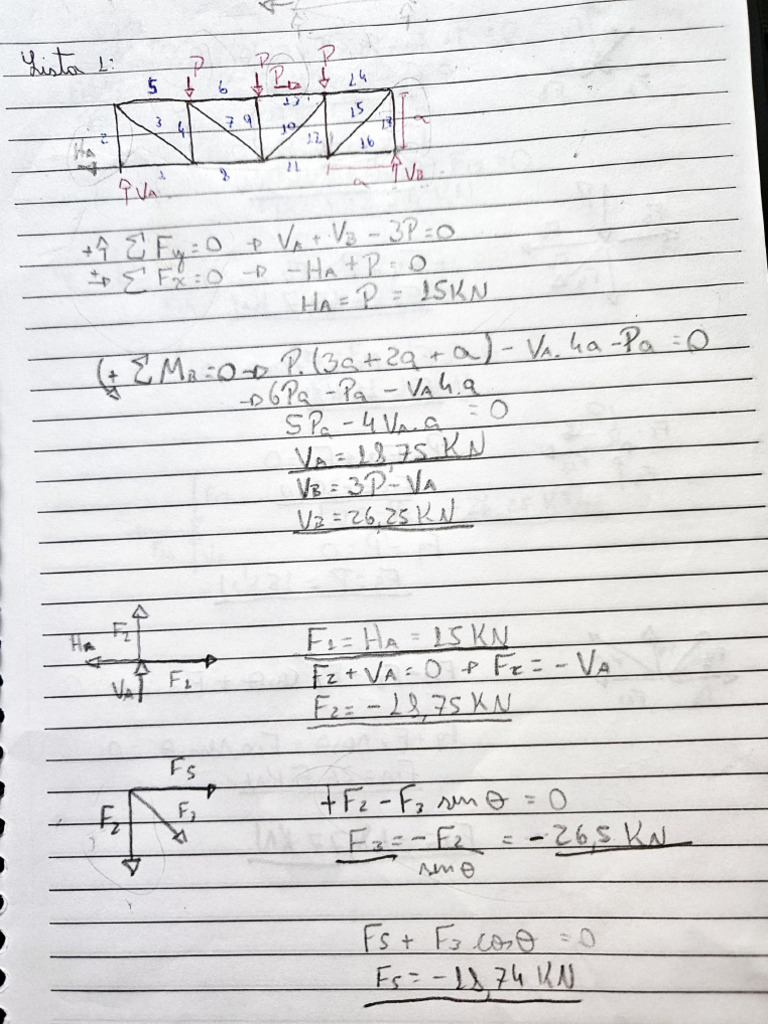 Lista 1:
P P P P
5 6 13 14
2 3 4 7 9 10 12 15
16
1 8 11
HA
VA VB
a
a
+↑ ΣFy=0 → VA + VB - 3P=0
+→ ΣFx=0 → -HA + P = 0
HA = P = 15KN
(+ ΣMB=0 → P.(3a+2a+a) - VA.4a - Pa = 0
→ 6Pa - Pa - VA4.a
5Pa - 4VA.a = 0
VA = 18,75 KN
VB = 3P - VA
VB = 26,25 KN
HA F2 VA F1
F1 = HA = 15 KN
F2 + VA = 0 → F2 = - VA
F2 = - 18,75 KN
F5
F2 F3
+F2 - F3 sen θ = 0
F3 = -F2 = - 26,5 KN
sen θ
F5 + F3 cos θ = 0
F5 = - 18,74 KN